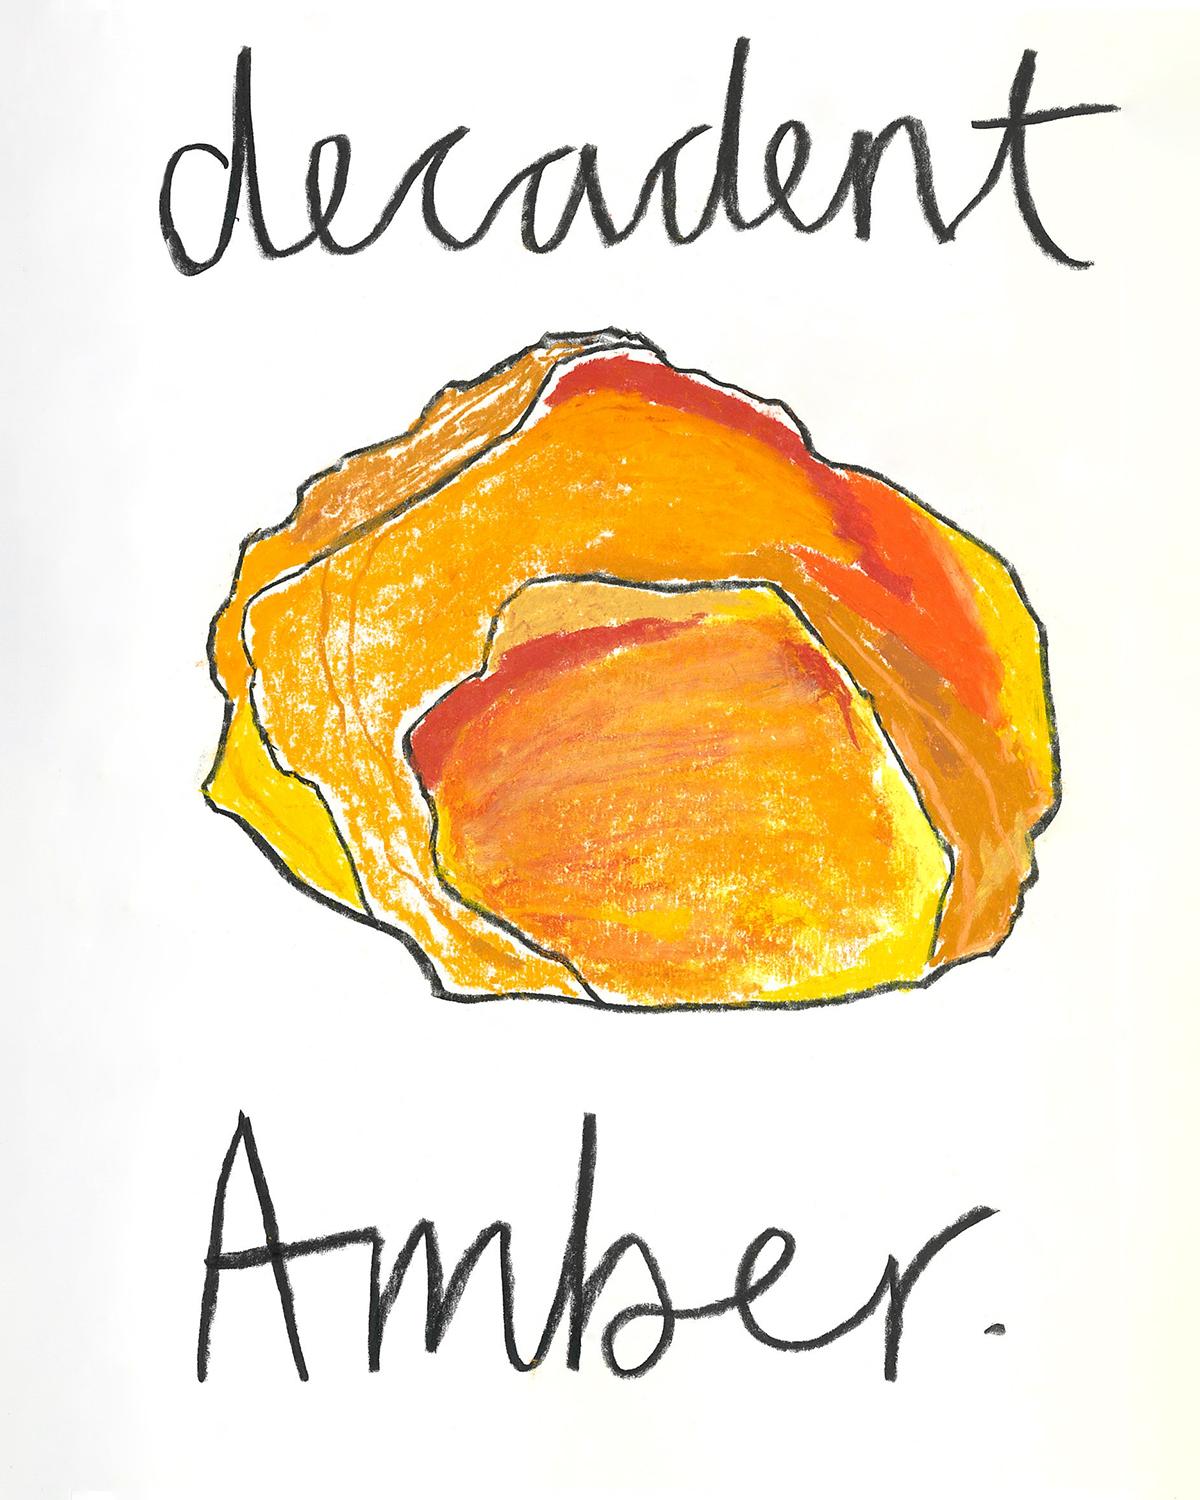 decadent
Amber.